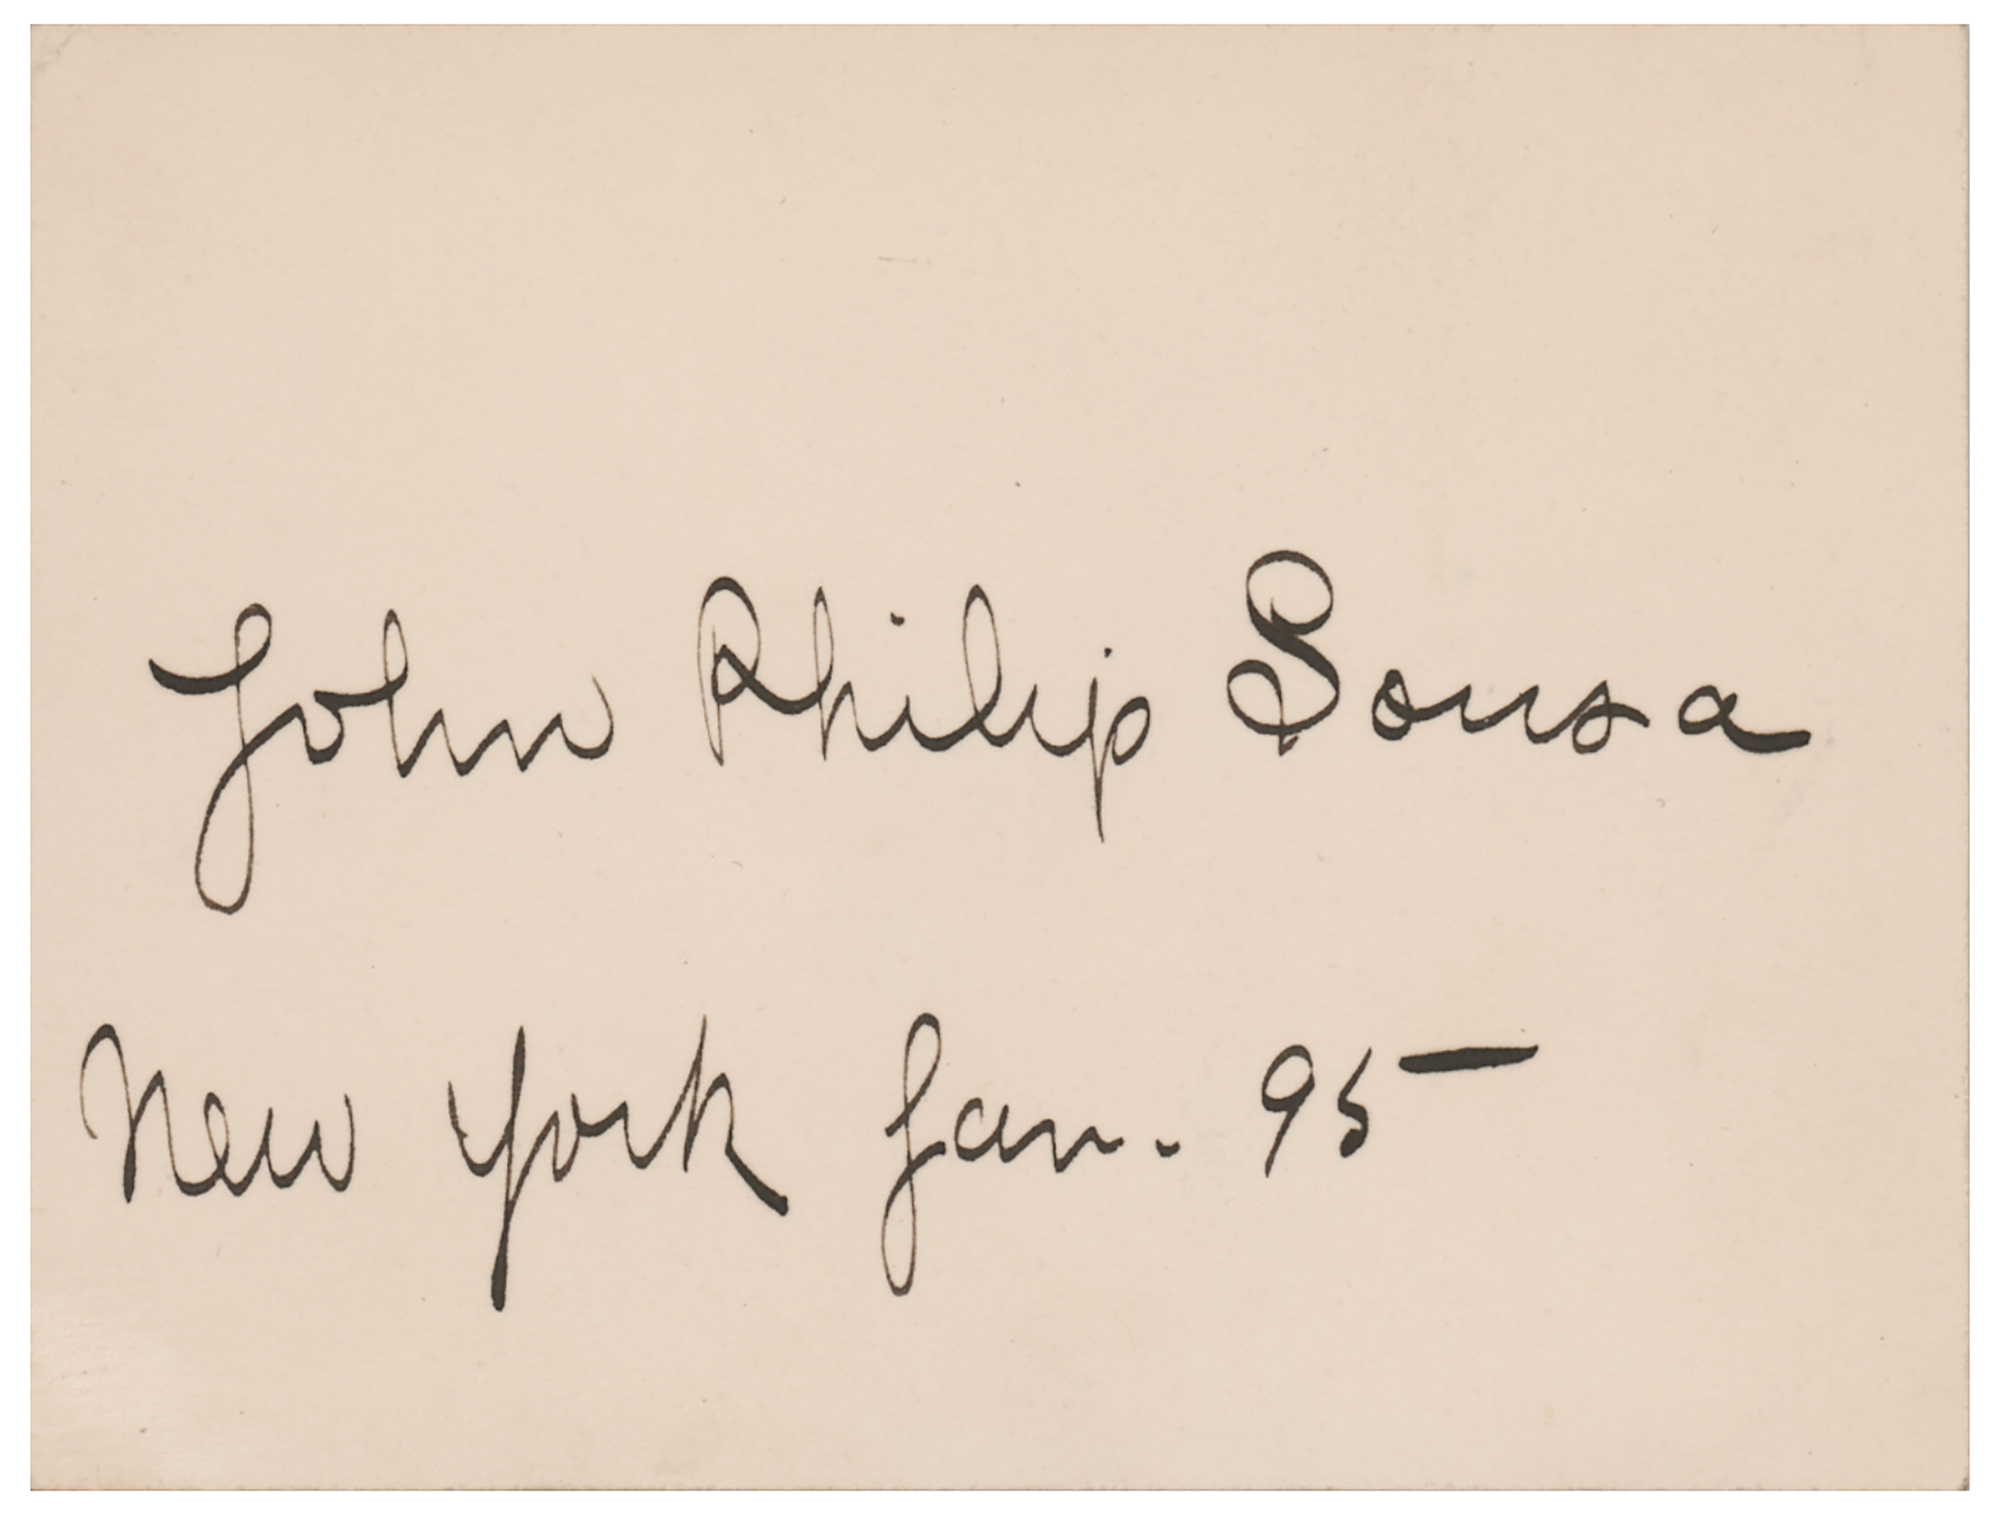 John Philip Sousa
New York Jan. 95